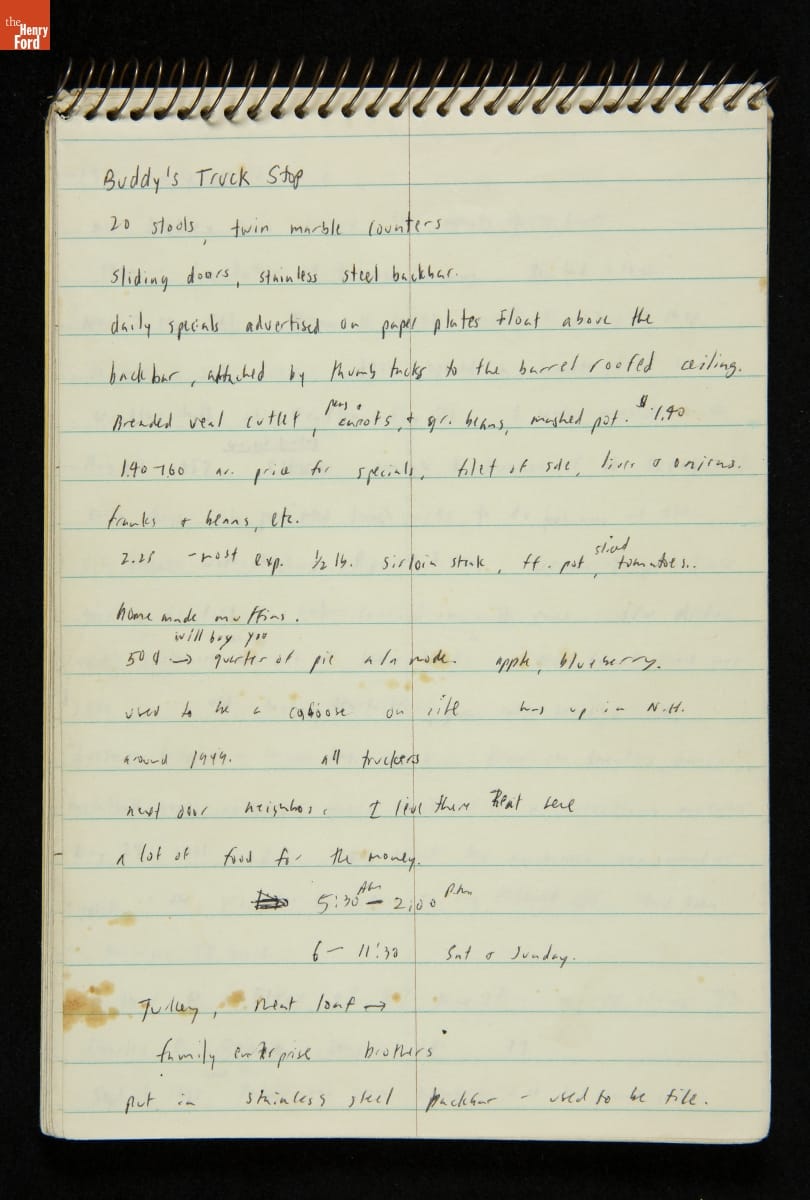 the Henry Ford
Buddy's Truck Stop
20 stools, twin marble counters
sliding doors, stainless steel backbar.
daily specials advertised on paper plates float above the
backbar, attached by thumb tacks to the barrel roofed ceiling.
peas +
Breaded veal cutlet, carrots, + gr. beans, mashed pot. $1.40
1.40-1.60 av. price for specials, filet of sole, liver & onions.
franks & beans, etc.
2.25 - most exp. 1/2 lb. sirloin steak, ff. pot, sliced tomatoes..
home made muffins.
will buy you
50¢ → quarter of pie a la mode. apple, blueberry.
used to be a caboose on site was up in N.H.
around 1949. all truckers
next door neighbor. I live there & eat here
a lot of food for the money.
5:30 AM - 2:00 P.M
6 - 11:30 Sat & Sunday.
Turkey, Meat loaf →
family enterprise brothers
put in stainless steel backbar - used to be tile.